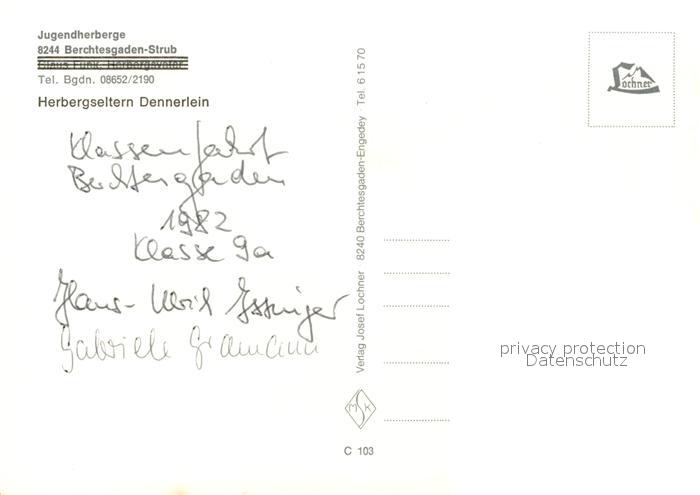 Jugendherberge
8244 Berchtesgaden-Strub
Claus Funk, Herbergsvater
Tel. Bgdn. 08652/2190
Herbergseltern Dennerlein
Klassenfahrt
Berchtesgaden
1982
Klasse 9a
Hans-Ulrich Issinger
Gabriele Gramann
Verlag Josef Lochner 8240 Berchtesgaden-Engedey · Tel. 6 15 70
Lochner
MSK
C 103
privacy protection
Datenschutz